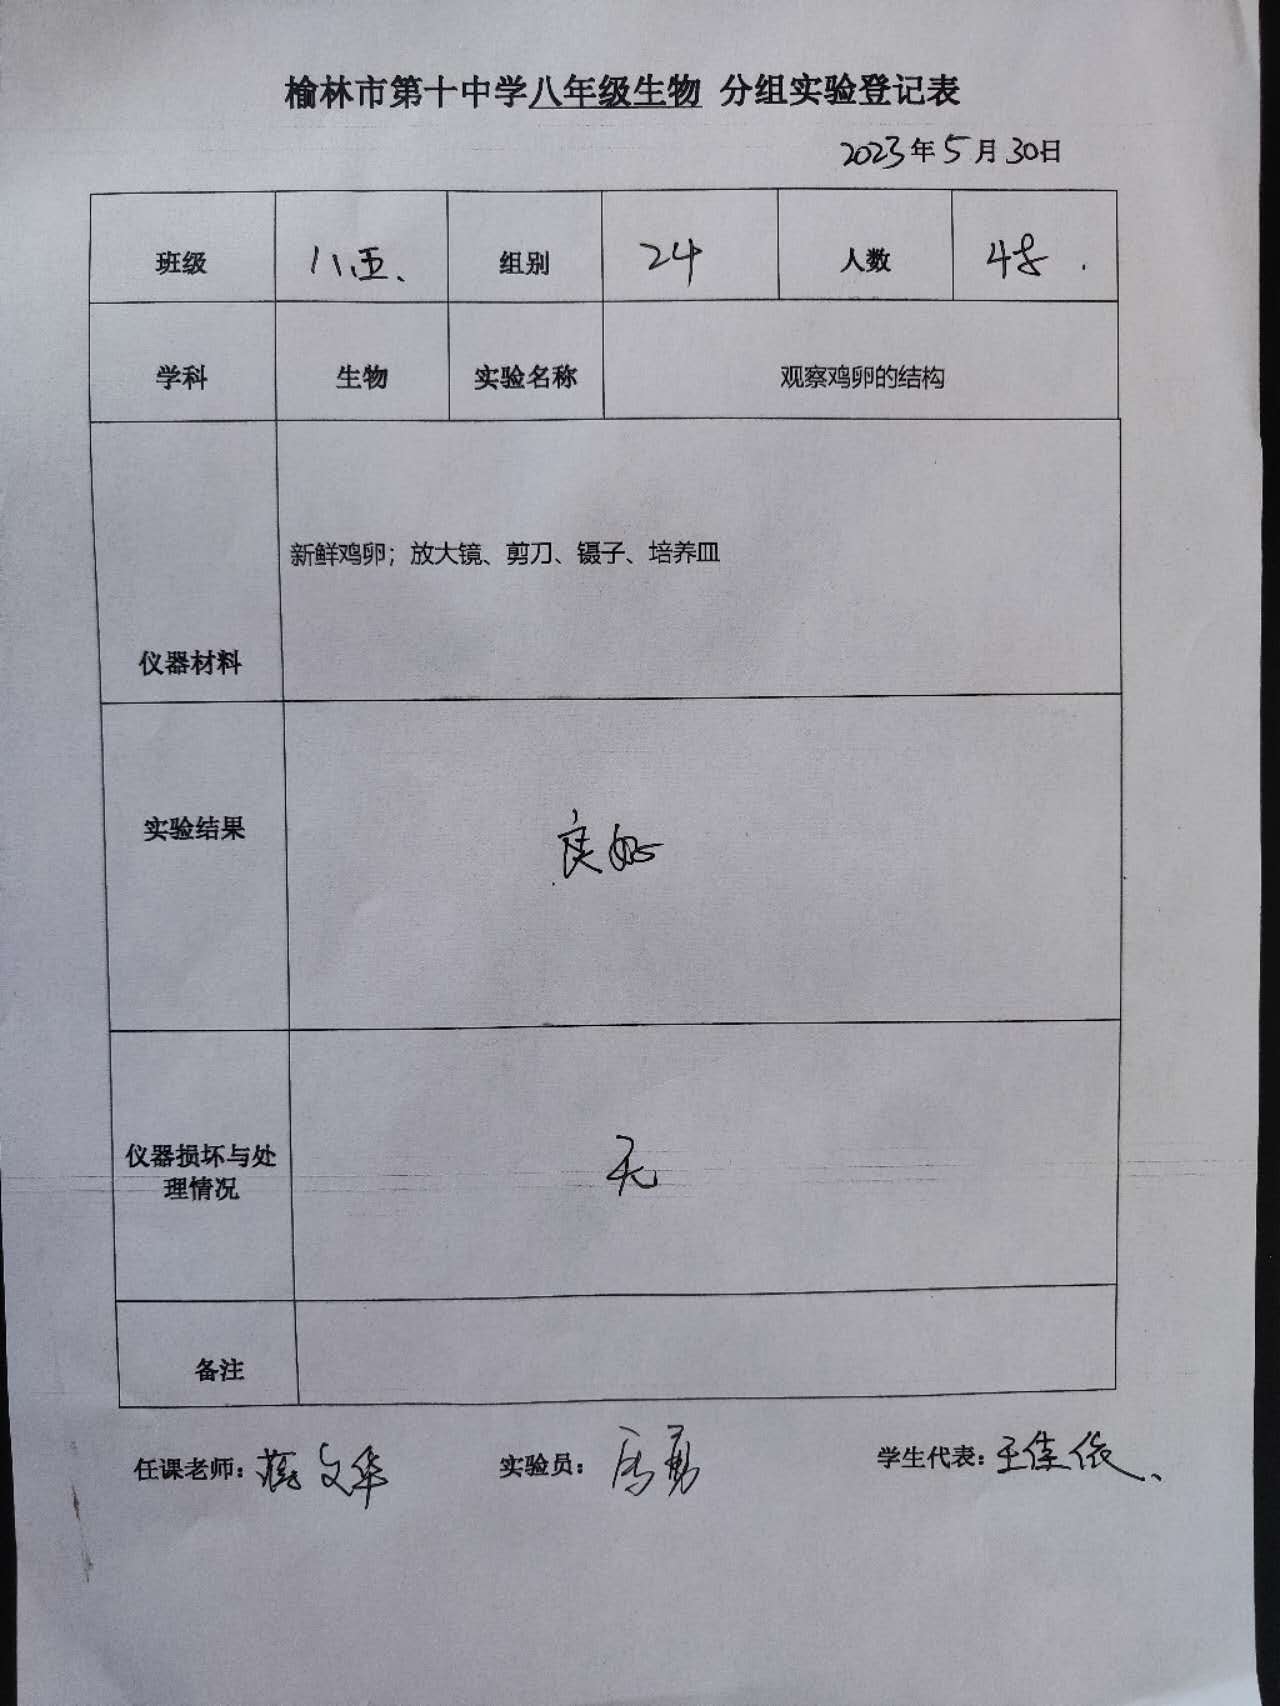 榆林市第十中学八年级生物 分组实验登记表
2023年5月30日
班级 八.五、 组别 24 人数 48.
学科 生物 实验名称 观察鸡卵的结构
新鲜鸡卵；放大镜、剪刀、镊子、培养皿
仪器材料
实验结果 良好
仪器损坏与处
理情况
无
备注
任课老师：蒋文华 实验员： 学生代表：王佳依、